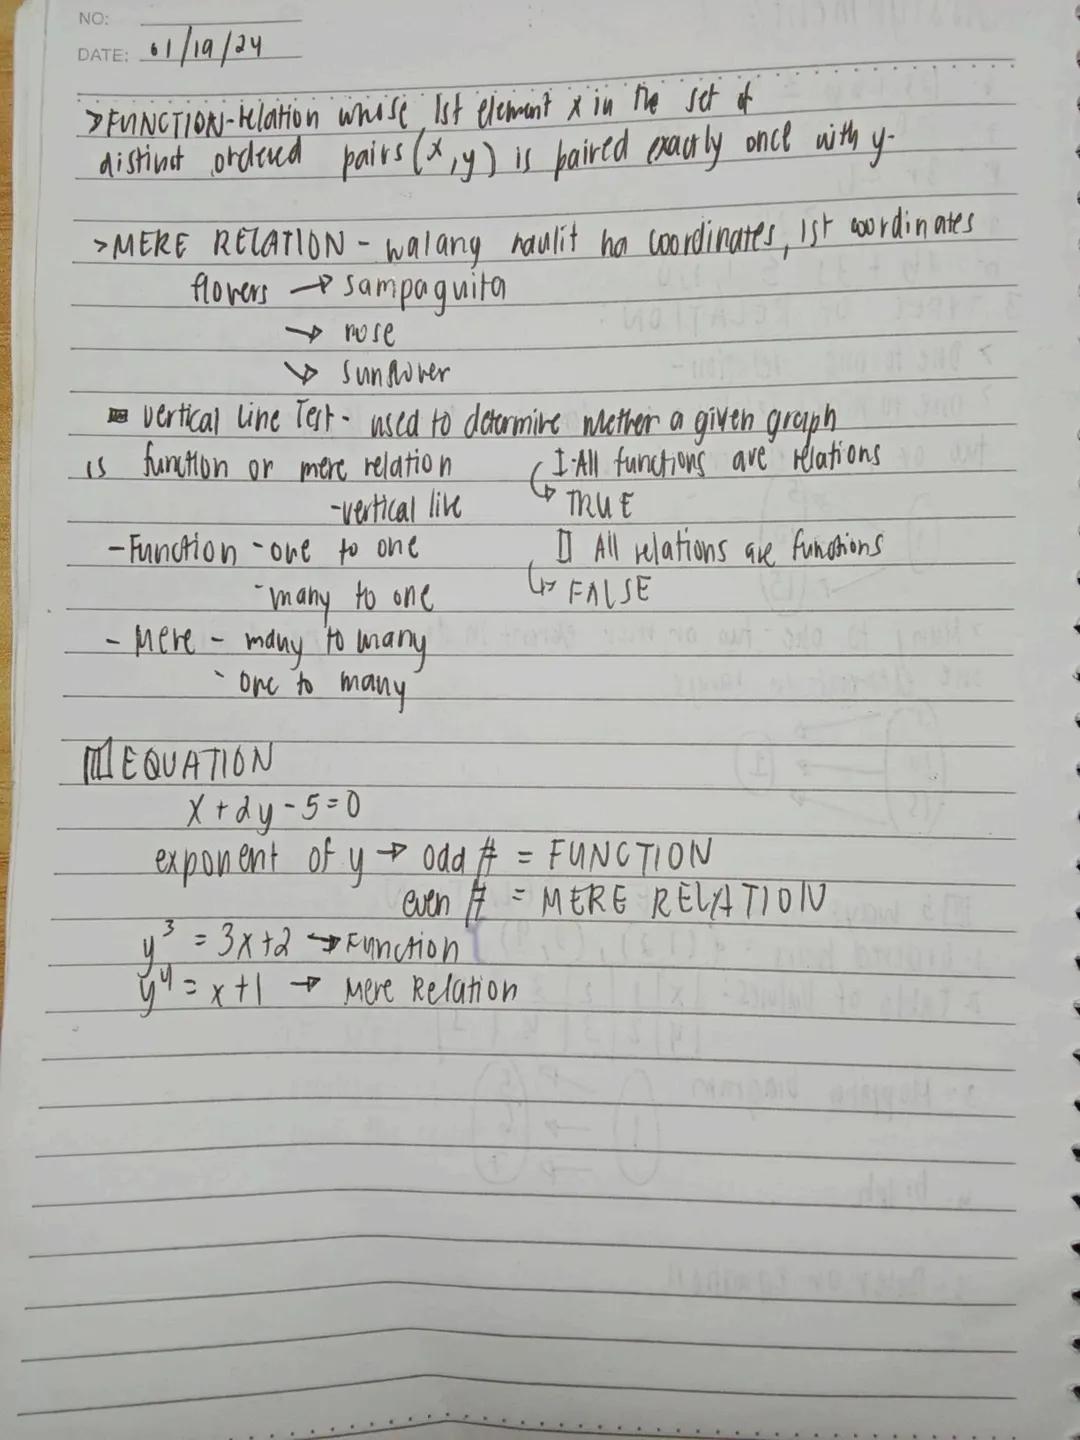 NO:
DATE: 01/19/24
>FUNCTION-relation whose 1st element x in the set of
distinct ordered pairs (x,y) is paired exactly once with y.
>MERE RELATION - walang naulit na coordinates, 1st coordinates
flowers → sampaguita
→ rose
→ sunflower
Vertical Line Test - used to determine whether a given graph
is function or mere relation
-vertical line
-Function - one to one
-many to one
- Mere - many to many
- one to many
I. All functions are relations
↳ TRUE
II All relations are functions
↳ FALSE
III EQUATION
x+2y-5=0
exponent of y → odd # = FUNCTION
even # = MERE RELATION
y³ = 3x+2 → Function
y⁴ = x+1 → Mere Relation